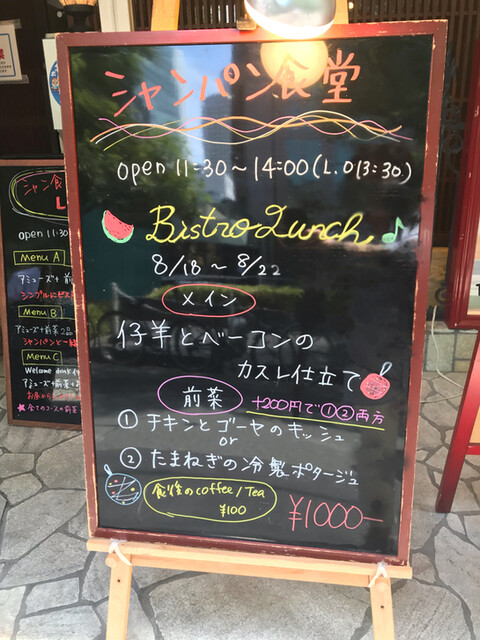 シャンパン食堂
open 11:30～14:00(L.O13:30)
Bistro Lunch
8/18～8/22
メイン
仔羊とベーコンの
カスレ仕立て
前菜
+200円で①②両方
① チキンとゴーヤのキッシュ
or
② たまねぎの冷製ポタージュ
食後のcoffee/Tea
¥100
¥1000-
シャン食
L
open 11:30
Menu A
アミューズ+前
シンプルにビスト
Menu B
アミューズ+前菜2品
シャンパンと一緒
Menu C
Welcome drink付
アミューズ+前菜+